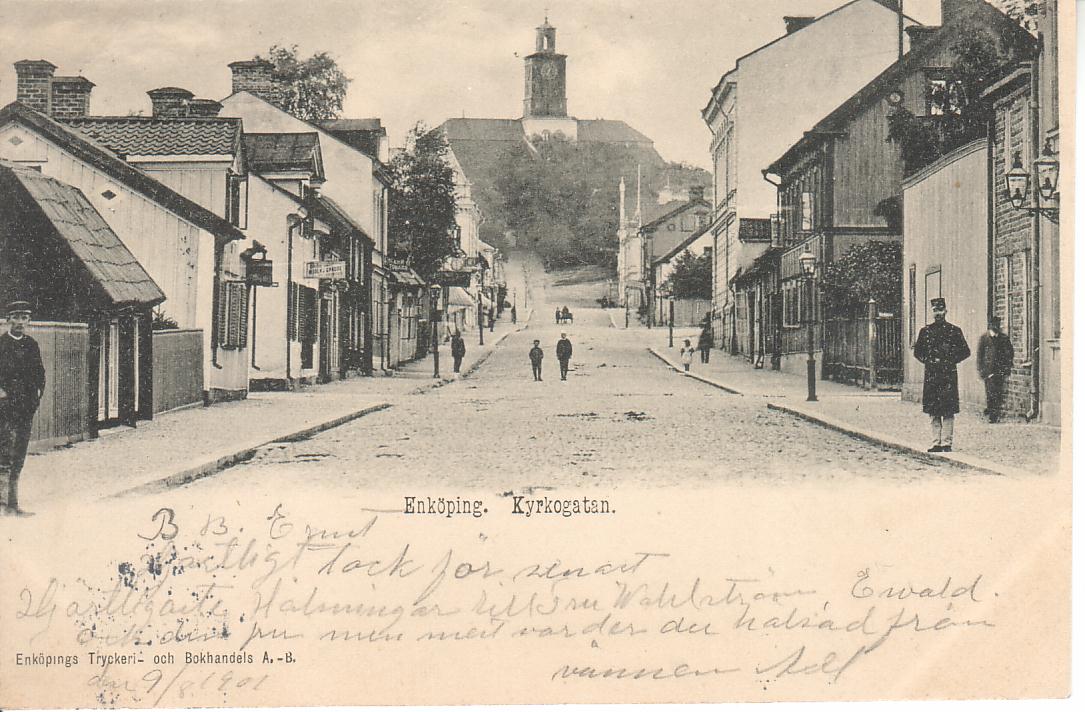 Enköping. Kyrkogatan.
B B. Ernst
Hjärtligt tack för senast
Hjärtligaste Hälsningar till Fru Wahlström, Ewald.
och din fru men mest varder du hälsad från
Enköpings Tryckeri- och Bokhandels A.-B.
vännen
den 9/8 1901